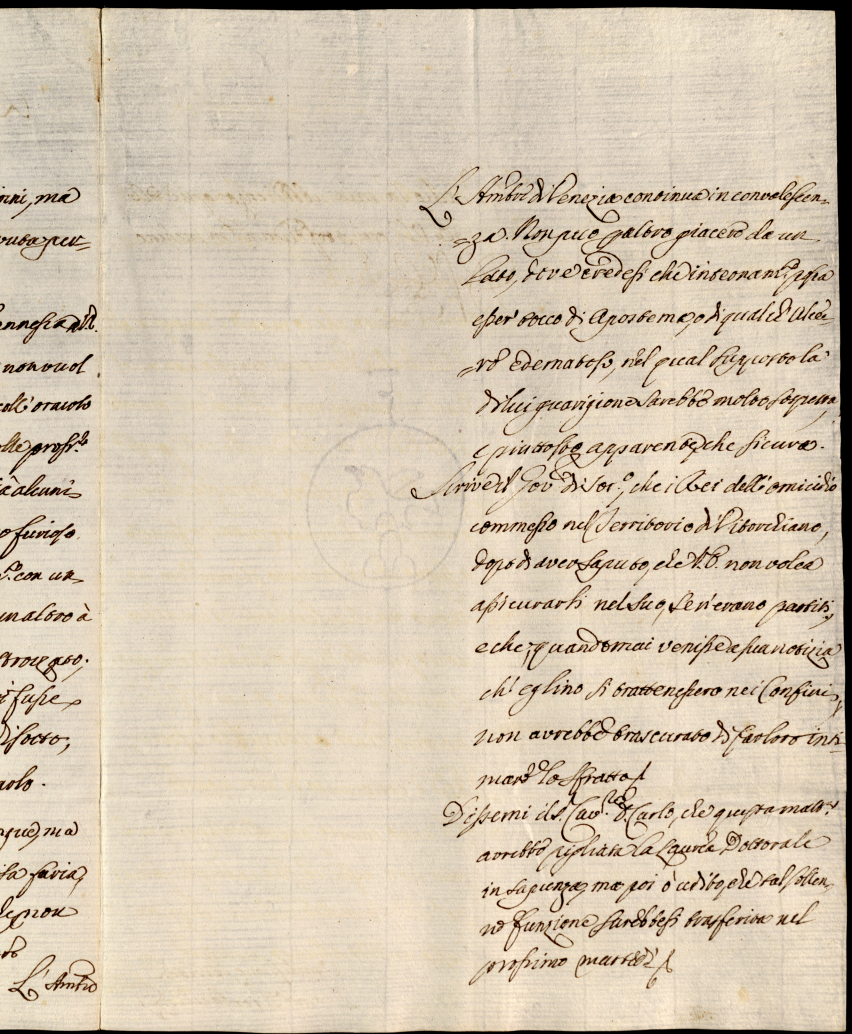 nni, ma
ruba per-
non vuol
coll'oracolo
à alcuni
o furioso
con un
un altro à
fusse
di sotto,
que, ma
la furia,
non
L'Ambro
L'Ambr di Venezia continua in convalescen-
-za. Non può per altro giacere da un
lato, dove credesi che internam.te possa
esser tocco di Apostema, o di qualche Ulce-
-ro edematoso, nel qual supposto la
di lui guarigione sarebbe molto sospetta,
e piuttosto apparente, che sicura.
Scrive il Gov.r di Sor.o, che i Rei dell'omicidio
commesso nel Territorio di Vitorchiano,
dopo di aver saputo, che V.E. non volea
assicurarli nel suo, se n'erano partiti,
e che, quando mai venisse a sua notizia
ch'eglino si trattenessero nei Confini,
non avrebbe trascurato di far loro inti-
mare lo sfratto.
Dissemi il S.r Cav.re D. Carlo, che questa matt.a
avrebbe pigliata la Laurea Dottorale
in Sapienza, ma poi ò udito, che tal sollen-
ne funzione sarebbesi trasferita nel
prossimo martedì.